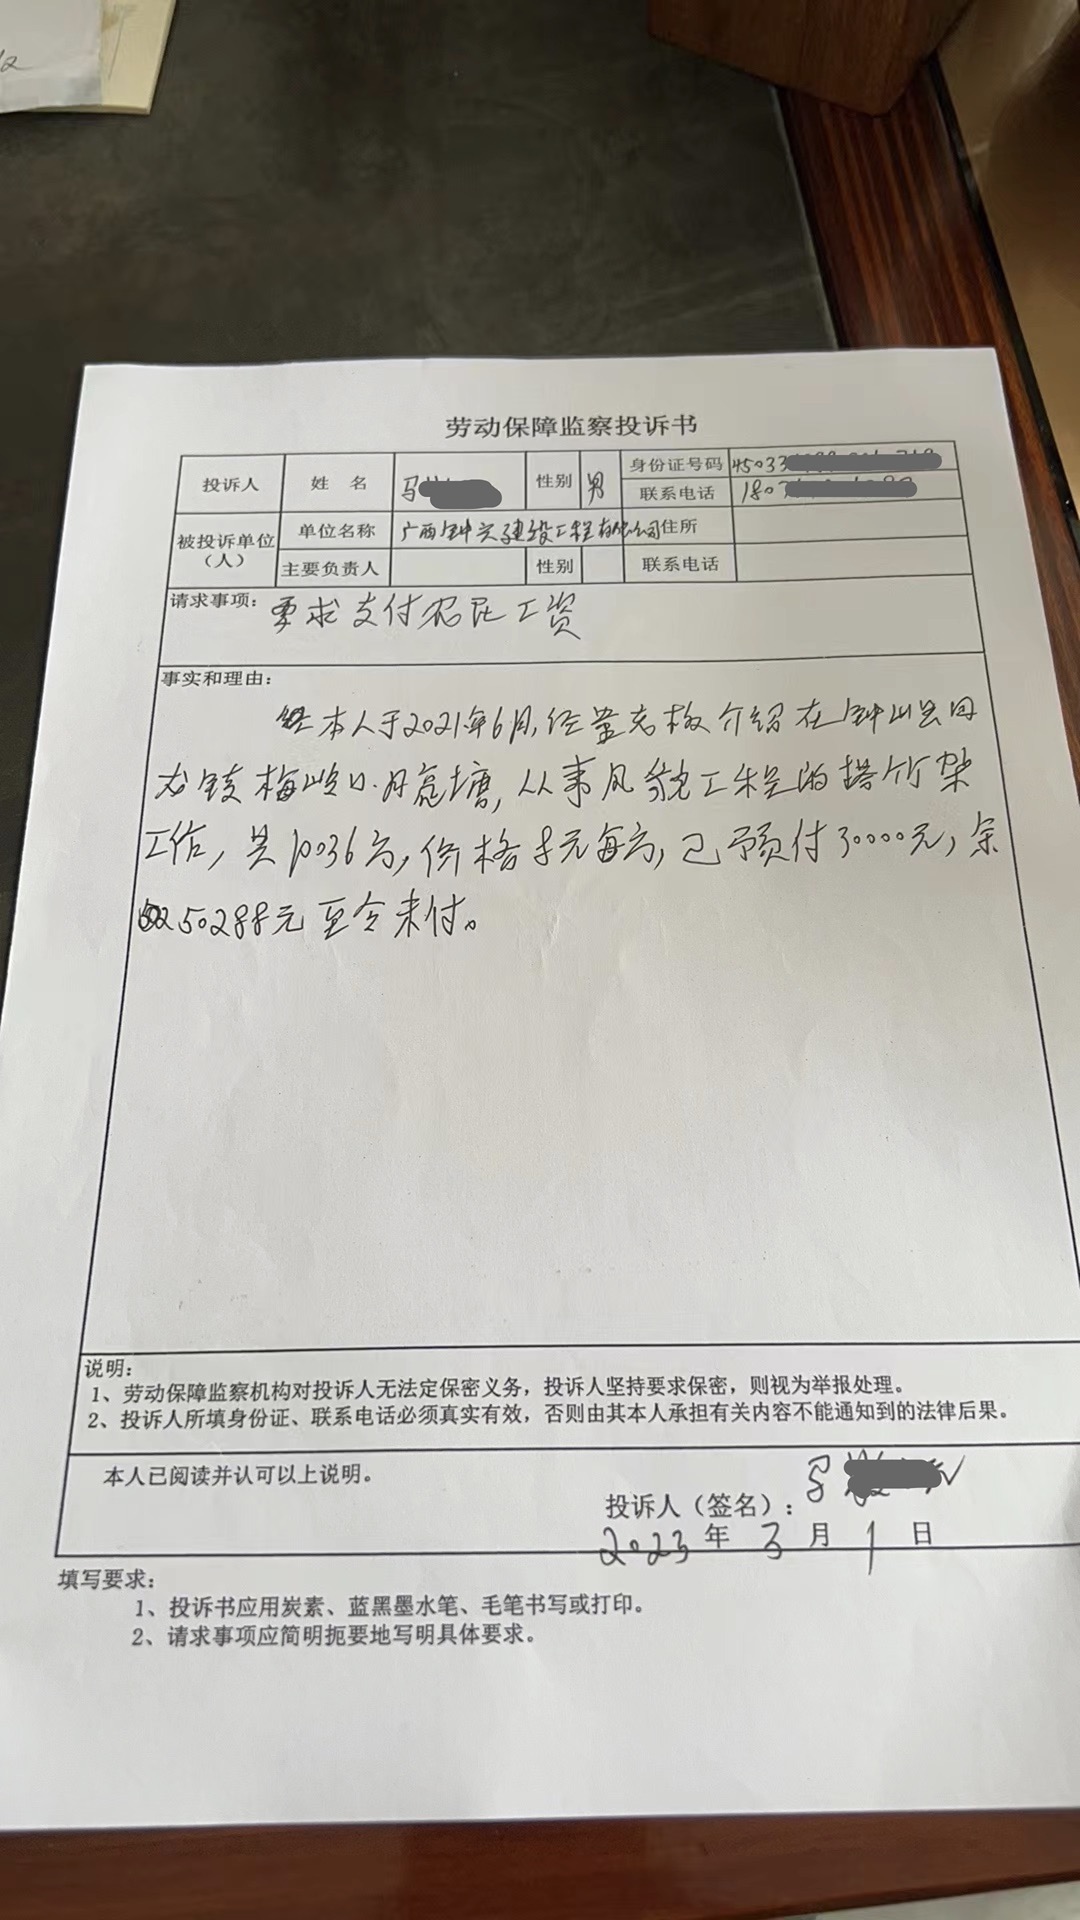 劳动保障监察投诉书
投诉人 姓 名 马 性别 男 身份证号码 45033
联系电话 180
被投诉单位（人） 单位名称 广西钟兴建设工程有限公司 住所
主要负责人 性别 联系电话
请求事项： 要求支付农民工资
事实和理由：
本人于2021年6月，经董志板介绍在钟山县回
龙镇梅岭口月亮塘，从事风貌工程的搭竹架
工作，共10036方，价格8元每方，已预付30000元，余
50288元至今未付。
说明：
1、劳动保障监察机构对投诉人无法定保密义务，投诉人坚持要求保密，则视为举报处理。
2、投诉人所填身份证、联系电话必须真实有效，否则由其本人承担有关内容不能通知到的法律后果。
本人已阅读并认可以上说明。
投诉人（签名）：马
2023年3月1日
填写要求：
1、投诉书应用炭素、蓝黑墨水笔、毛笔书写或打印。
2、请求事项应简明扼要地写明具体要求。